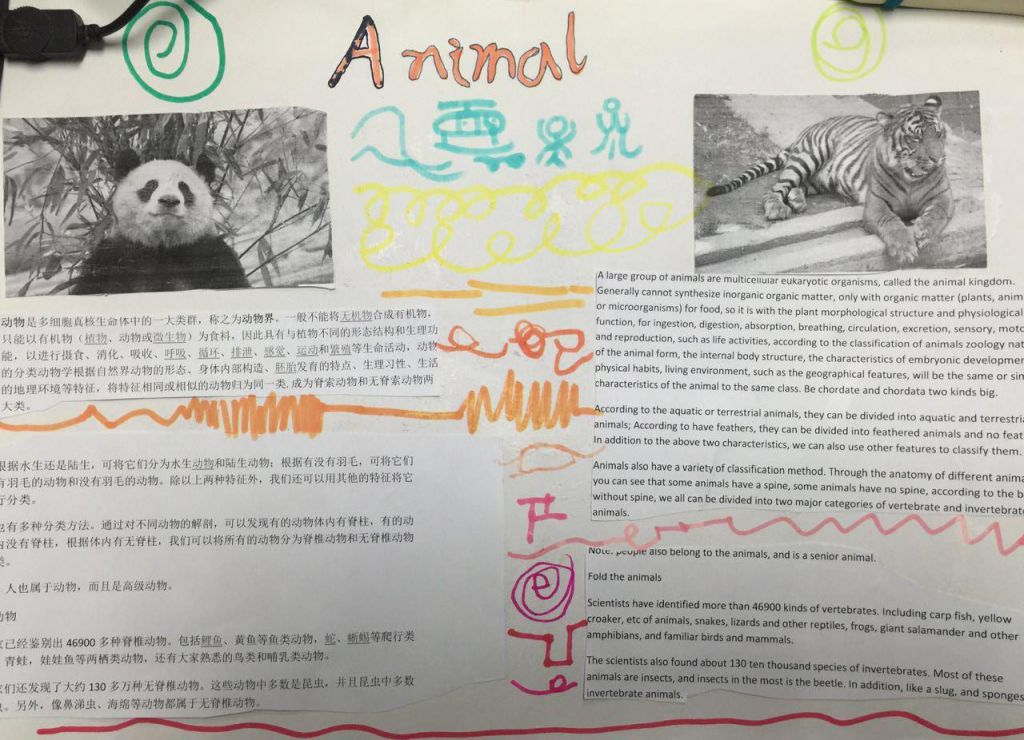 Animal
动物是多细胞真核生命体中的一大类群，称之为动物界。一般不能将无机物合成有机物，
只能以有机物（植物、动物或微生物）为食料，因此具有与植物不同的形态结构和生理功
能，以进行摄食、消化、吸收、呼吸、循环、排泄、感觉、运动和繁殖等生命活动，动物
的分类动物学根据自然界动物的形态、身体内部构造、胚胎发育的特点、生理习性、生活
的地理环境等特征，将特征相同或相似的动物归为同一类.成为脊索动物和无脊索动物两
大类。
根据水生还是陆生，可将它们分为水生动物和陆生动物；根据有没有羽毛，可将它们
有羽毛的动物和没有羽毛的动物。除以上两种特征外，我们还可以用其他的特征将它
行分类。
也有多种分类方法。通过对不同动物的解剖，可以发现有的动物体内有脊柱，有的动
内没有脊柱，根据体内有无脊柱，我们可以将所有的动物分为脊椎动物和无脊椎动物
类。
人也属于动物，而且是高级动物。
动物
已经鉴别出 46900 多种脊椎动物。包括鲤鱼、黄鱼等鱼类动物，蛇、蜥蜴等爬行类
青蛙，娃娃鱼等两栖类动物，还有大家熟悉的鸟类和哺乳类动物。
们还发现了大约 130 多万种无脊椎动物。这些动物中多数是昆虫，并且昆虫中多数
虫。另外，像鼻涕虫、海绵等动物都属于无脊椎动物。
A large group of animals are multicellular eukaryotic organisms, called the animal kingdom.
Generally cannot synthesize inorganic organic matter, only with organic matter (plants, anim
or microorganisms) for food, so it is with the plant morphological structure and physiological
function, for ingestion, digestion, absorption, breathing, circulation, excretion, sensory, moto
and reproduction, such as life activities, according to the classification of animals zoology nat
of the animal form, the internal body structure, the characteristics of embryonic developmen
physical habits, living environment, such as the geographical features, will be the same or sim
characteristics of the animal to the same class. Be chordate and chordata two kinds big.
According to the aquatic or terrestrial animals, they can be divided into aquatic and terrestri
animals; According to have feathers, they can be divided into feathered animals and no feat
In addition to the above two characteristics, we can also use other features to classify them.
Animals also have a variety of classification method. Through the anatomy of different anima
you can see that some animals have a spine, some animals have no spine, according to the b
without spine, we all can be divided into two major categories of vertebrate and invertebrat
animals.
Note: people also belong to the animals, and is a senior animal.
Fold the animals
Scientists have identified more than 46900 kinds of vertebrates. Including carp fish, yellow
croaker, etc of animals, snakes, lizards and other reptiles, frogs, giant salamander and other
amphibians, and familiar birds and mammals.
The scientists also found about 130 ten thousand species of invertebrates. Most of these
animals are insects, and insects in the most is the beetle. In addition, like a slug, and sponges
invertebrate animals.